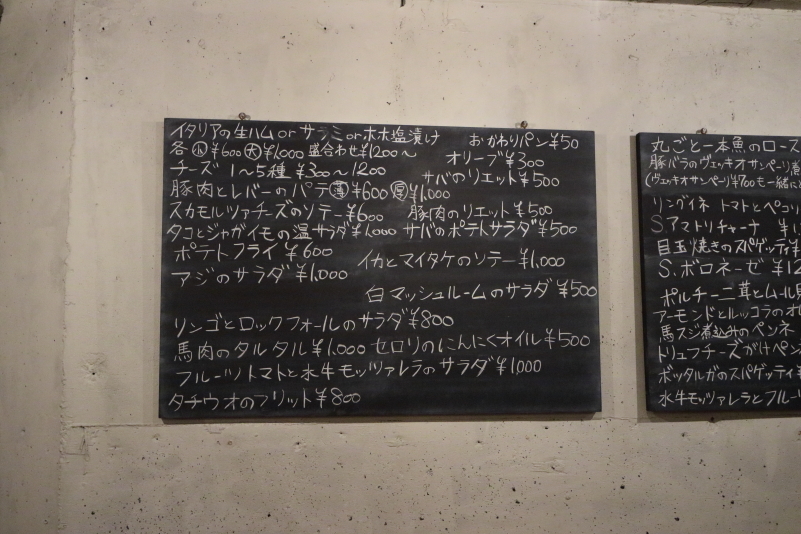 イタリアの生ハム or サラミ or ホホ塩漬け おかわりパン ¥50
各 小 ¥600 大 ¥1,000 盛合わせ ¥1200〜 オリーブ ¥300
チーズ 1〜5種 ¥300〜1200 サバのリエット ¥500
豚肉とレバーのパテ 薄 ¥600 厚 ¥1,000
スカモルツァチーズのソテー ¥600 豚肉のリエット ¥500
タコとジャガイモの温サラダ ¥1,000 サバのポテトサラダ ¥500
ポテトフライ ¥600 イカとマイタケのソテー ¥1,000
アジのサラダ ¥1,000
白マッシュルームのサラダ ¥500
リンゴとロックフォールのサラダ ¥800
馬肉のタルタル ¥1,000 セロリのにんにくオイル ¥500
フルーツトマトと水牛モッツァレラのサラダ ¥1000
タチウオのフリット ¥800
丸ごと一本魚のロース
豚バラのヴェッキオサンペーリ
(ヴェッキオサンペーリ ¥700も一緒に
リングイネ トマトとペコリ
S.アマトリチャーナ ¥1
目玉焼きのスパゲッティ ¥
S.ボロネーゼ ¥12
ポルチーニ茸とムール
アーモンドとルッコラのオ
馬スジ煮込みのペンネ
トリュフチーズがけペン
ボッタルガのスパゲッティ ¥
水牛モッツァレラとフルー